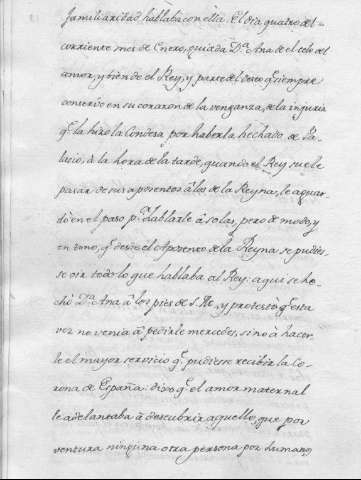 familiaridad hablaba con ella. El dia quatro del
corriente mes de Enero, guiada D.ª Ana de el celo del
amor, y bien de el Rey, y parte del deseo q.e siempre
conservó en su corazon de la venganza, de la injuria
q.e la hizo la Condesa por haberla hechado de Pa-
lacio, à la hora de la tarde, quando el Rey suele
pasar de sus aposentos à los de la Reyna, le aguar-
dó en el paso p.ª hablarle à solas, pero de modo, y
en tono, q.e desde el Aposento de la Reyna se pudies-
se oir todo lo que hablaba al Rey: aqui se he-
chó D.ª Ana à los pies de S. M., y protestó q.e esta
vez no venia à pedirle mercedes, sino à hacer-
le el mayor servicio q.e pudiesse recibir la Co-
rona de España: dixo q.e el amor maternal
le adelantaba à descubrir aquello, que por
ventura ninguna otra persona por humano,